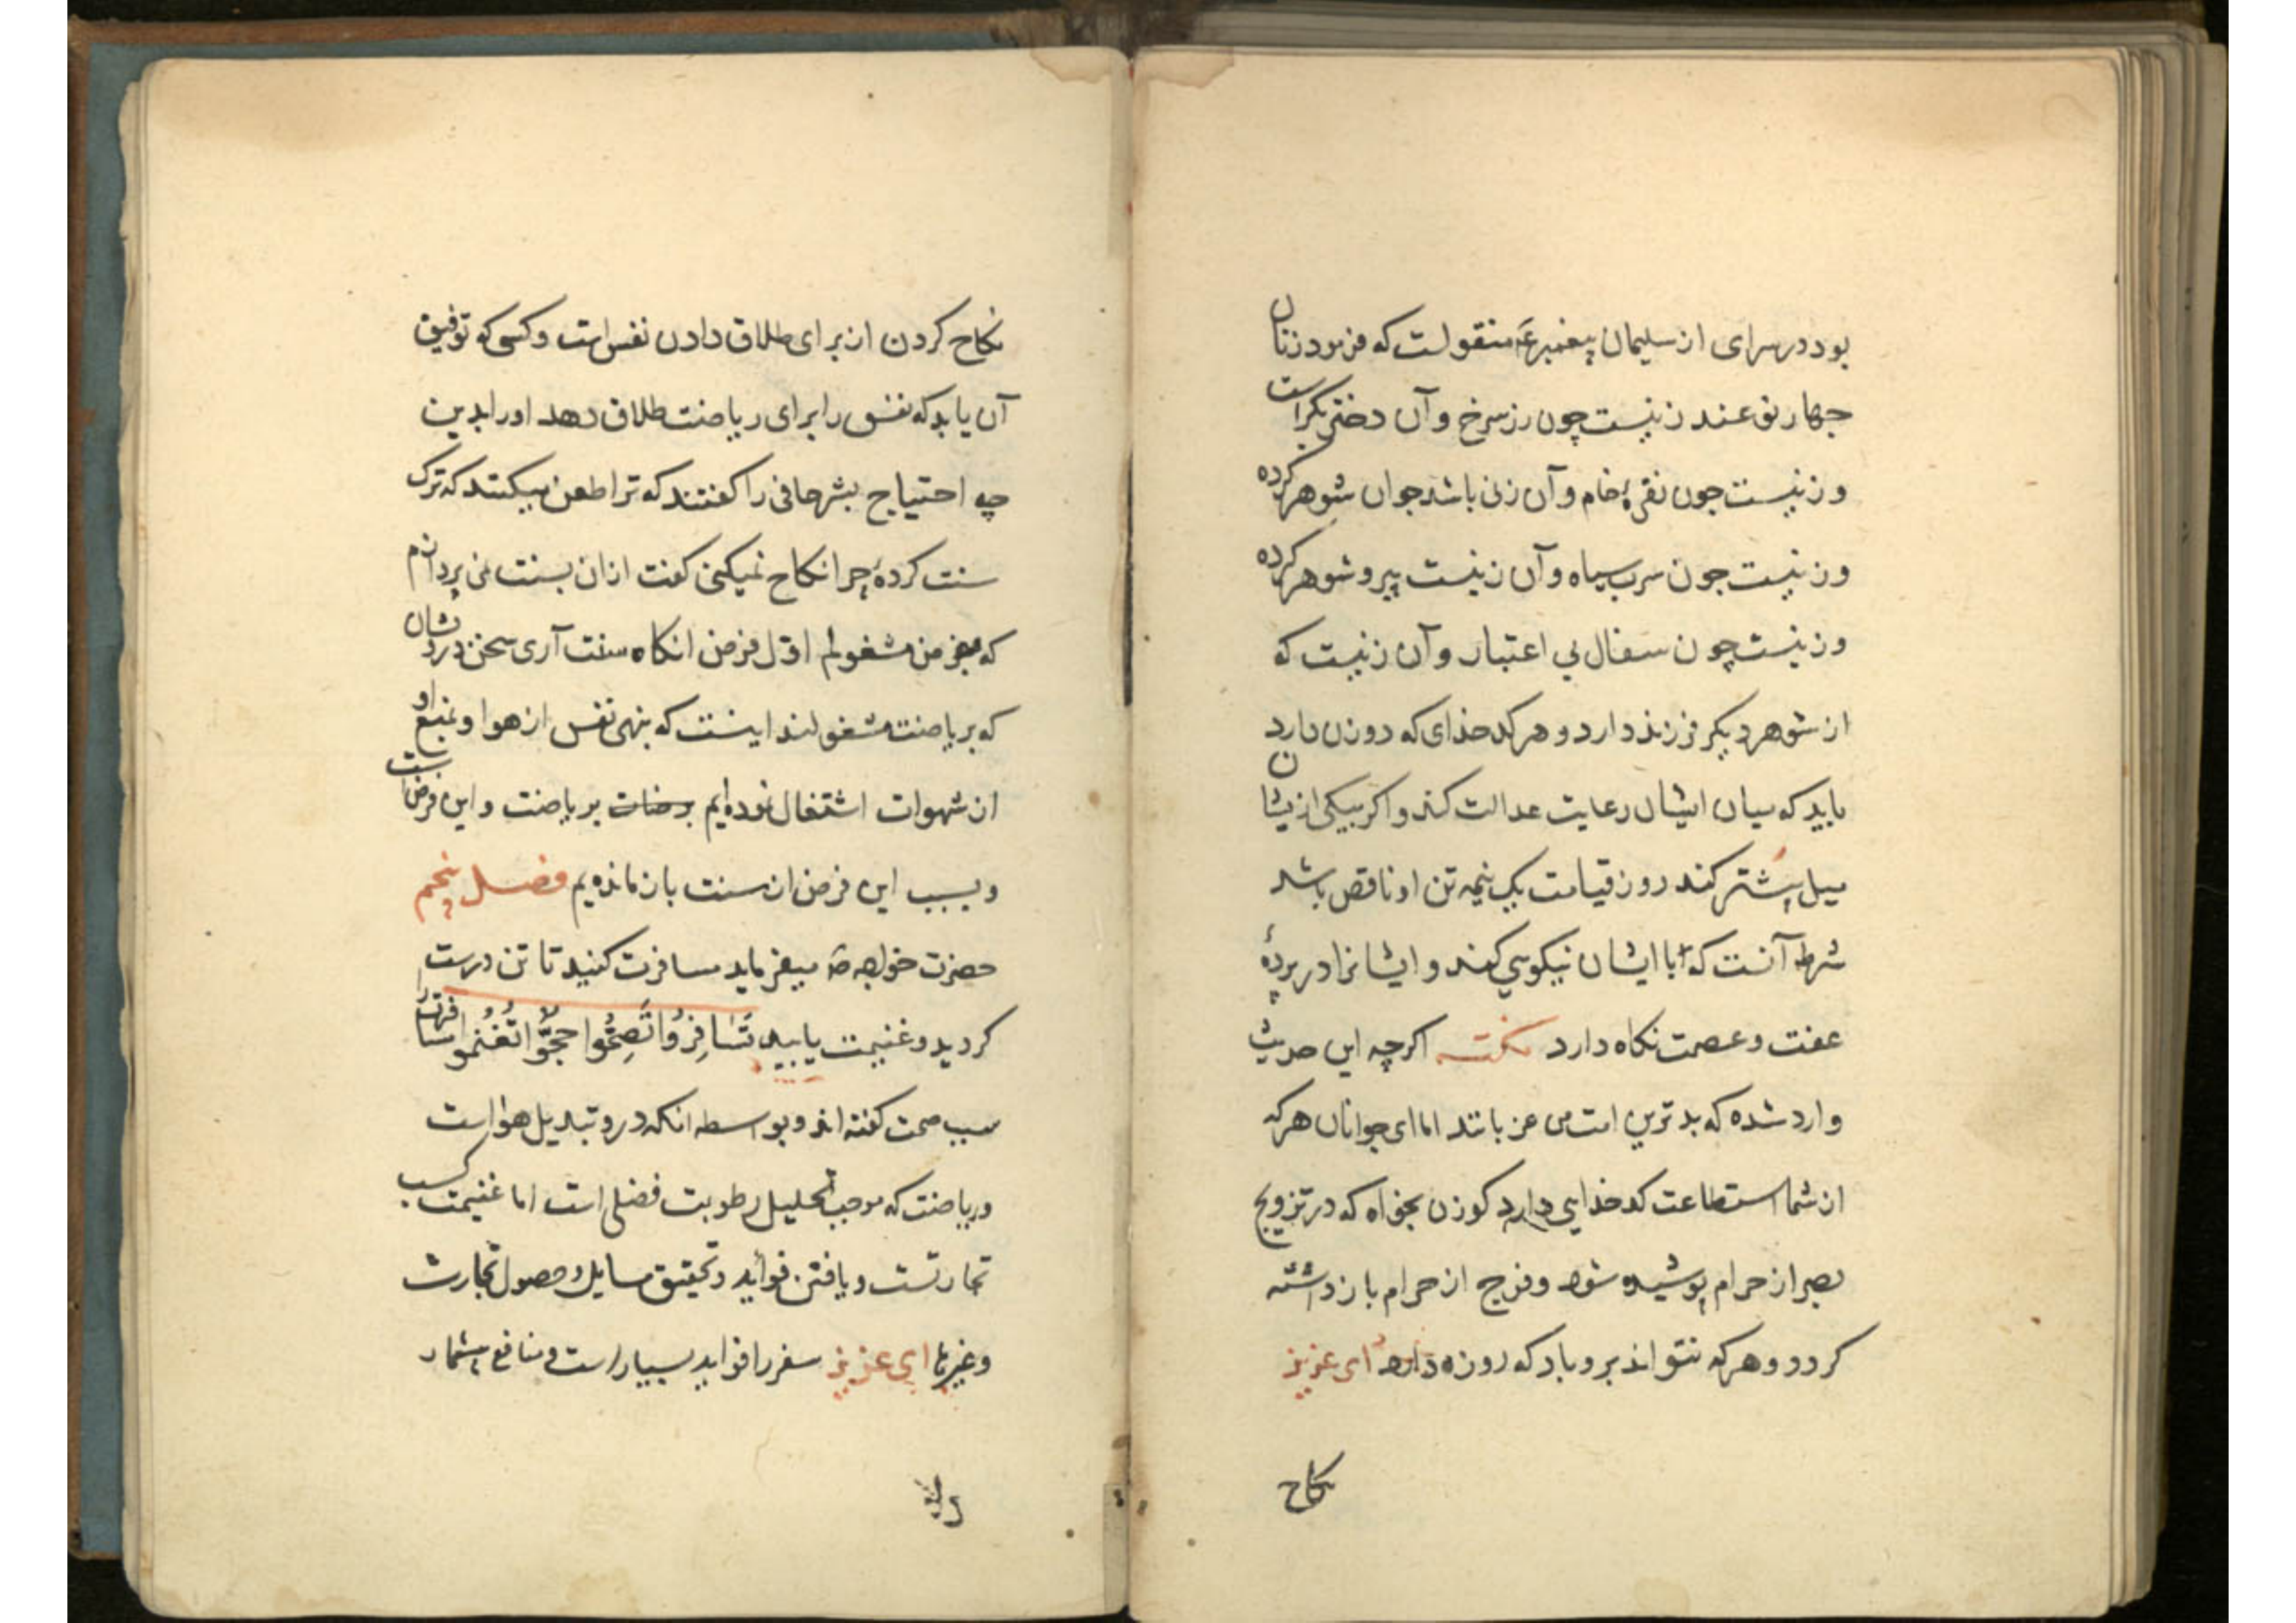 بود در سرای از سلیمان پیغمبر عم منقولست که فرمود زنان
چهار نوعند زنیست چون زر سرخ و آن دختر بکر است
و زنیست چون نقرهٔ خام و آن زنی باشد جوان شوهر کرده
و زنیست چون سرب سیاه و آن زنیست پیر و شوهر کرده
و زنیست چون سفال بی اعتبار و آن زنیست که
از شوهر دیگر فرزند دارد و هر کدخدای که دو زن دارد
باید که میان ایشان رعایت عدالت کند و اگر بیکی ازیشان
میل بیشتر کند روز قیامت یک نیمه تن او ناقص باشد
شرط آنست که با ایشان نیکویی کند و ایشانرا در پردهٔ
عفت و عصمت نکاه دارد نکته اگرچه این حدیث
وارد شده که بدترین امت من عزبانند اما ای جوانان هر که
از شما استطاعت کدخدایی دارد کو زن بخواه که در تزویج
بصر از حرام پوشیده شود و فرج از حرام باز داشته
کردد و هر که نتواند برو باد که روزه دارد ای عزیز
نکاح
نکاح کردن از برای طلاق دادن نفس است و کسی که توفیق
آن یابد که نفس را برای ریاضت طلاق دهد او را بدین
چه احتیاج بشر حافی را کفتند که ترا طعن میکنند که ترک
سنت کردهٔ چرا نکاح نمیکنی کفت از آن بسنت نمی پردازم
که بفرض مشغولم اول فرض انکاه سنت آری سخن درویشان
که بریاضت مشغولند اینست که بنهی نفس از هوا و منع او
از شهوات اشتغال نموده ایم بریاضت و این فرض است
و بسبب این فرض از سنت باز مانده یم فصل پنجم
حضرت خواجه ص میفرماید مسافرت کنید تا تن درست
کردید و غنیمت یابید تَسَافِرُوا تَصِحُّوا حجُّوا تُغْنُموا مسافرت را
سبب صحت کفته اند و بواسطه انکه درو تبدیل هوا است
و ریاضت که موجب تحلیل رطوبت فضلی است اما غنیمت کسب
تجارتست و یافتن فواید و تحقیق مسایل و حصول تجارت
و غیرها ای عزیز سفر را فواید بسیار است و منافع بیشمار